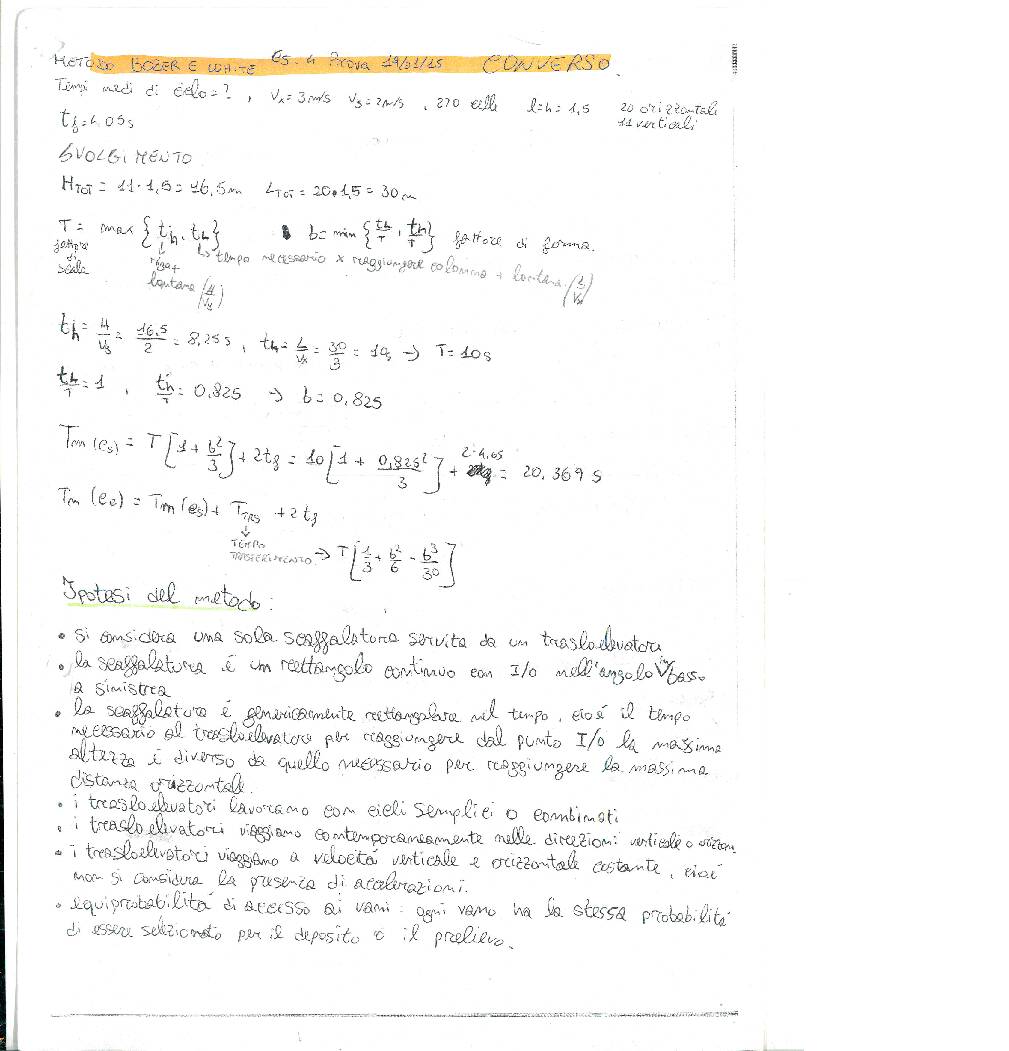 METODO BOZER E WHITE es. 4 Prova 19/01/15 CONVERSO.
Tempi medi di ciclo = ? , Vx = 3 m/s Vy = 2 m/s , 270 celle l=h= 1,5 20 orizzontali
11 verticali
tf = 4.05s
SVOLGIMENTO
HTOT = 11·1,5 = 16,5m LTOT = 20·1,5 = 30 m
T = max {th, tL} b = min {tL/T , th/T} fattore di forma.
fattore di scala
↓ riga + lontana (H/Vy)
↳ tempo necessario x raggiungere colonna + lontana (L/Vx)
th = H/Vy = 16,5/2 = 8,25 s , tL = L/Vx = 30/3 = 10s → T = 10s
tL/T = 1 , th/T = 0,825 → b = 0,825
Tm (es) = T [1 + b²/3] + 2tf = 10 [1 + 0,825²/3] + 2·4,05 = 20,369 s
Tm (ec) = Tm (es) + TTRS + 2 tf
↓
TEMPO
TRASFERIMENTO → T [1/3 + b²/6 - b³/30]
Ipotesi del metodo:
• si considera una sola scaffalatura servita da un trasloelevatore
• la scaffalatura è un rettangolo continuo con I/O nell'angolo in basso
a sinistra
• la scaffalatura è genericamente rettangolare nel tempo, cioè il tempo
necessario al trasloelevatore per raggiungere dal punto I/O la massima
altezza è diverso da quello necessario per raggiungere la massima
distanza orizzontale.
• i trasloelevatori lavorano con cicli semplici o combinati
• i trasloelevatori viaggiano contemporaneamente nelle direzioni verticale o orizzon.
• i trasloelevatori viaggiano a velocità verticale e orizzontale costante, cioè
non si considera la presenza di accelerazioni.
• equiprobabilità di accesso ai vani: ogni vano ha la stessa probabilità
di essere selezionato per il deposito o il prelievo.